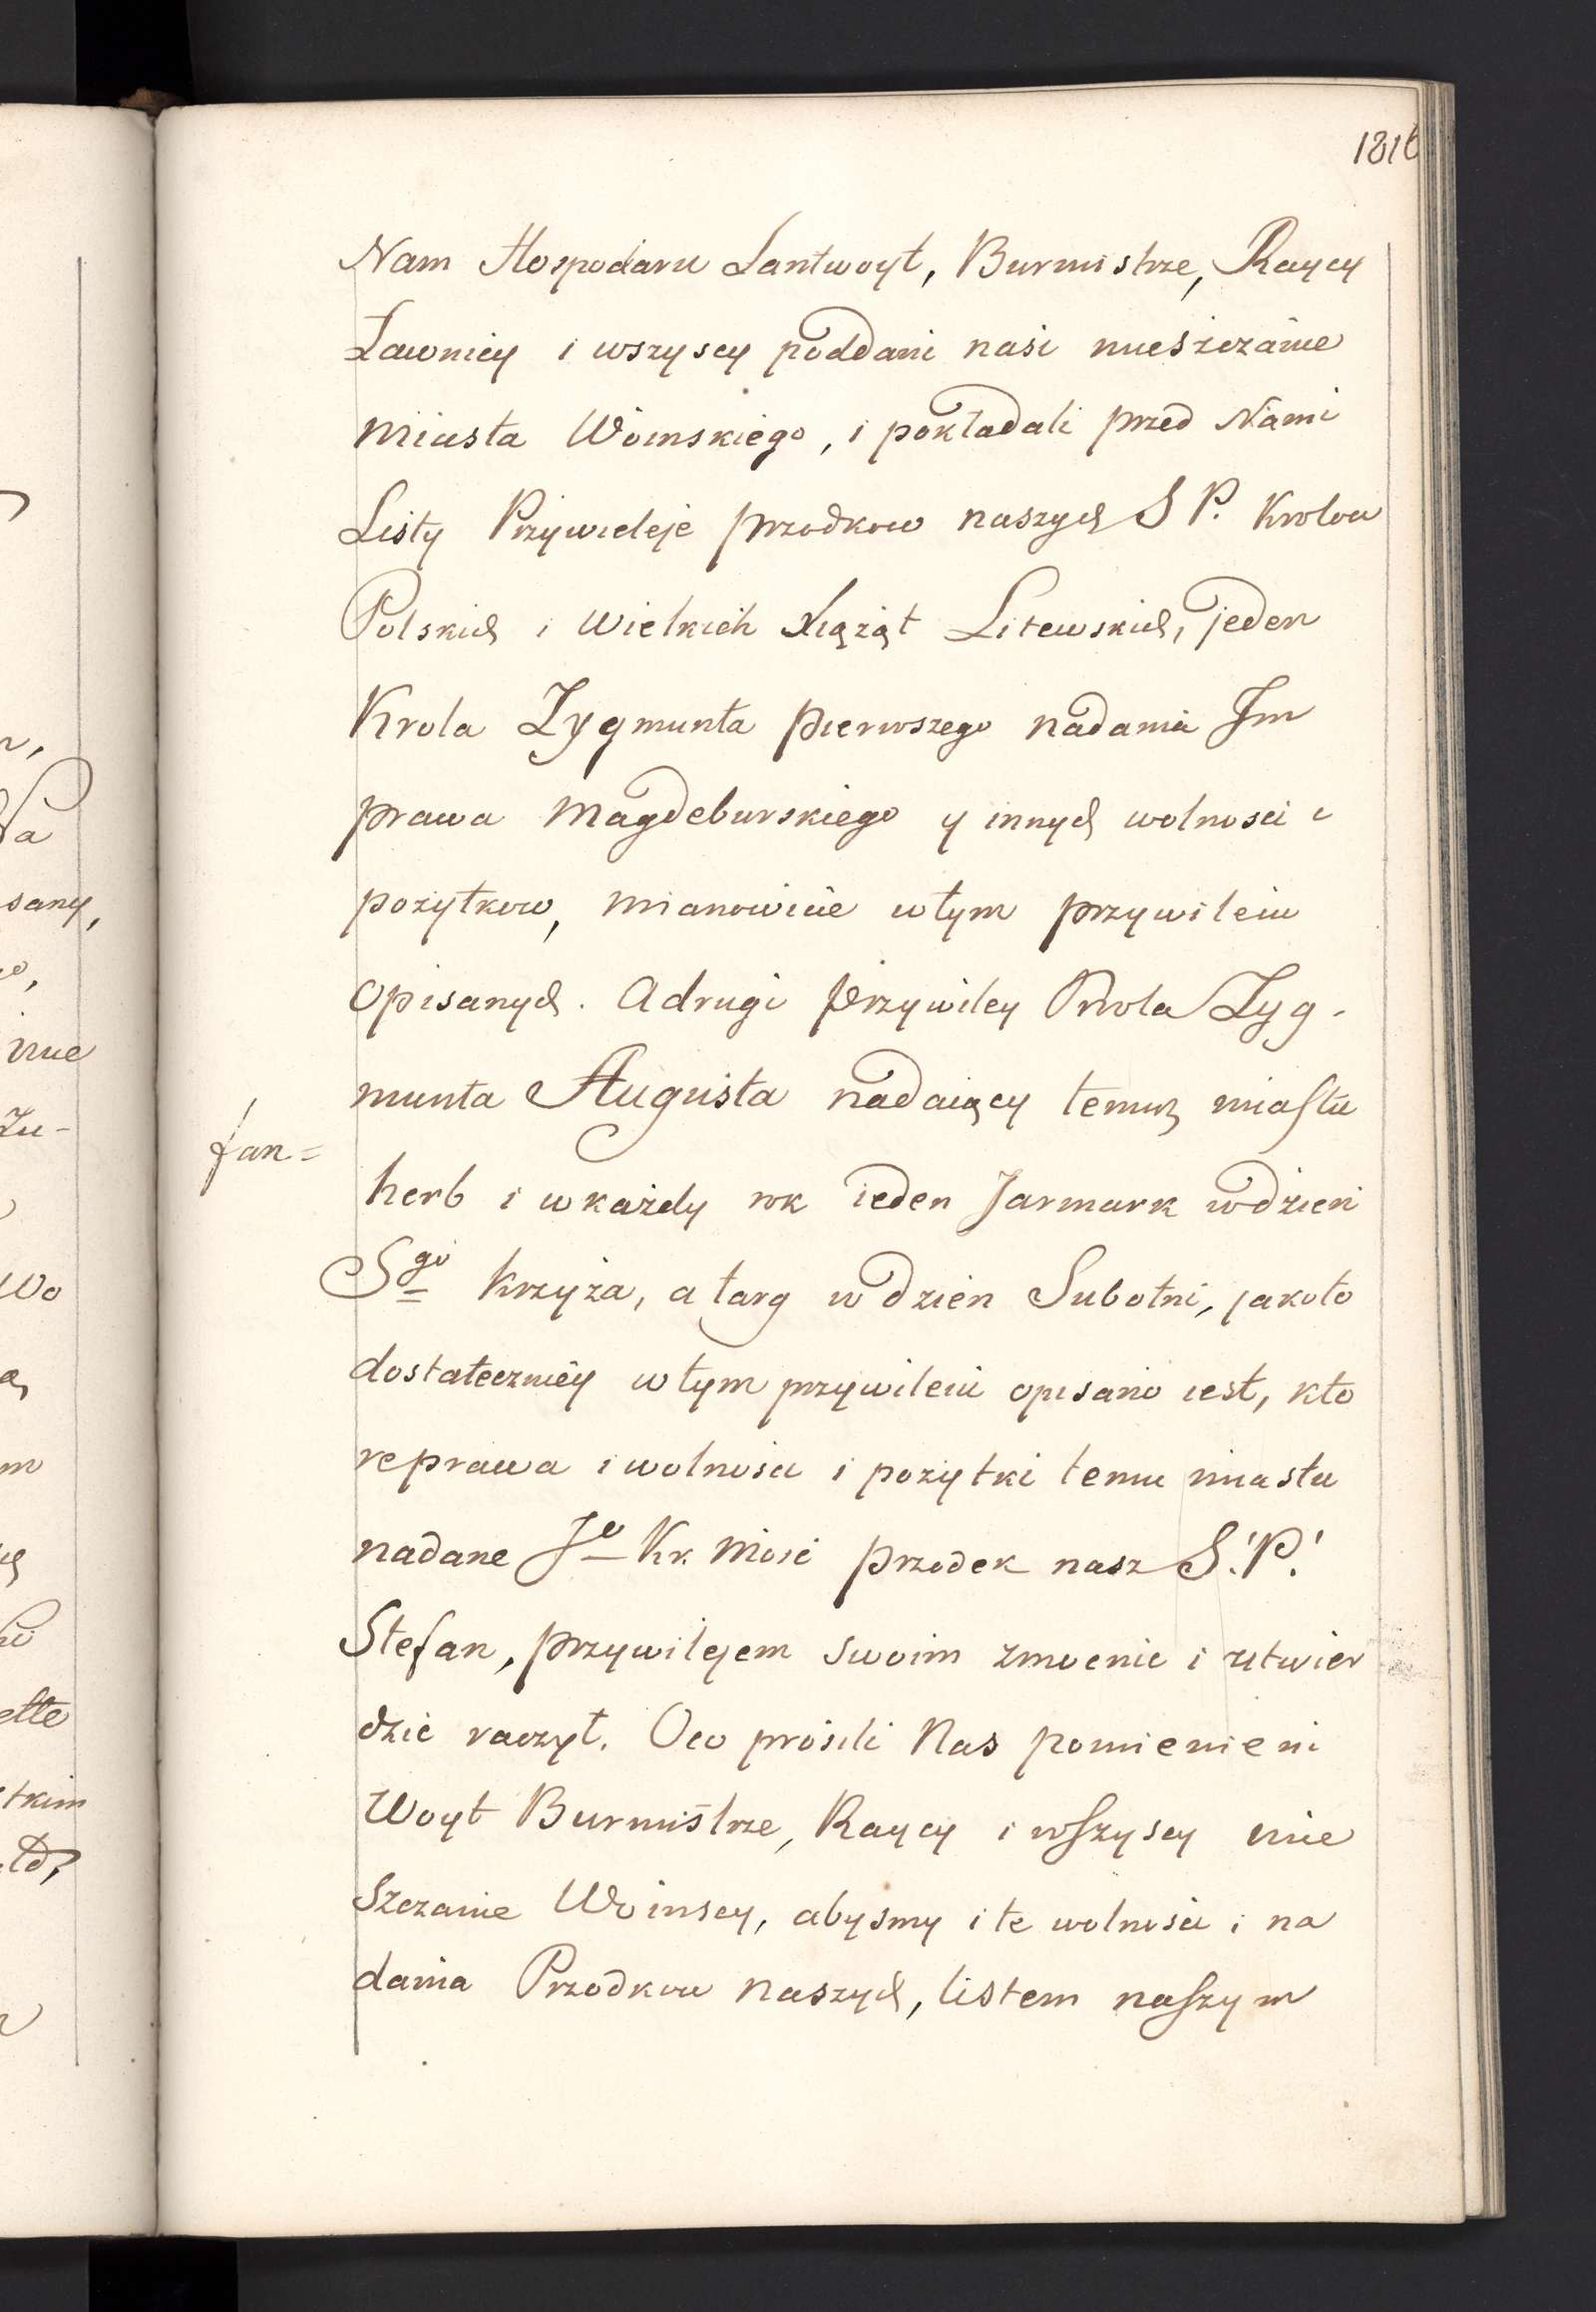 1816
Nam Hospodaru Lantwoyt, Burmistrze, Raycy
Ławnicy i wszyscy poddani nasi mieszczanie
miasta Woinskiego, i pokładali przed Nami
Listy Przywieleje przodkow naszych S P. Krolow
Polskich i Wielkich Xiążąt Litewskich, jeden
Krola Zygmunta pierwszego nadania Im
prawa Magdeburskiego y innych wolnosci i
pozytkow, mianowicie wtym przywileiu
opisanych. A drugi Przywiley Krola Zyg-
munta Augusta nadaiący temuz miastu
fan=
herb i w każdy rok ieden Jarmark w dzien
Sgo Krzyża, a targ w dzien Subotni, jakoto
dostateczniey w tym przywileiu opisano iest, kto
re prawa i wolnosci i pozytki temu miastu
nadane Jo Kr. Mosć przodek nasz S.' P.'
Stefan, przywilejem swoim zmocnic i utwier
dzić raczył. Oco prosili Nas pomienieni
Woyt Burmistrze, Raycy i wszyscy mie
szczanie Woinscy, abysmy i te wolnosci i na
dania Przodkow naszych, listem naszym
sany,
nie
Zu-
Wo
tkim